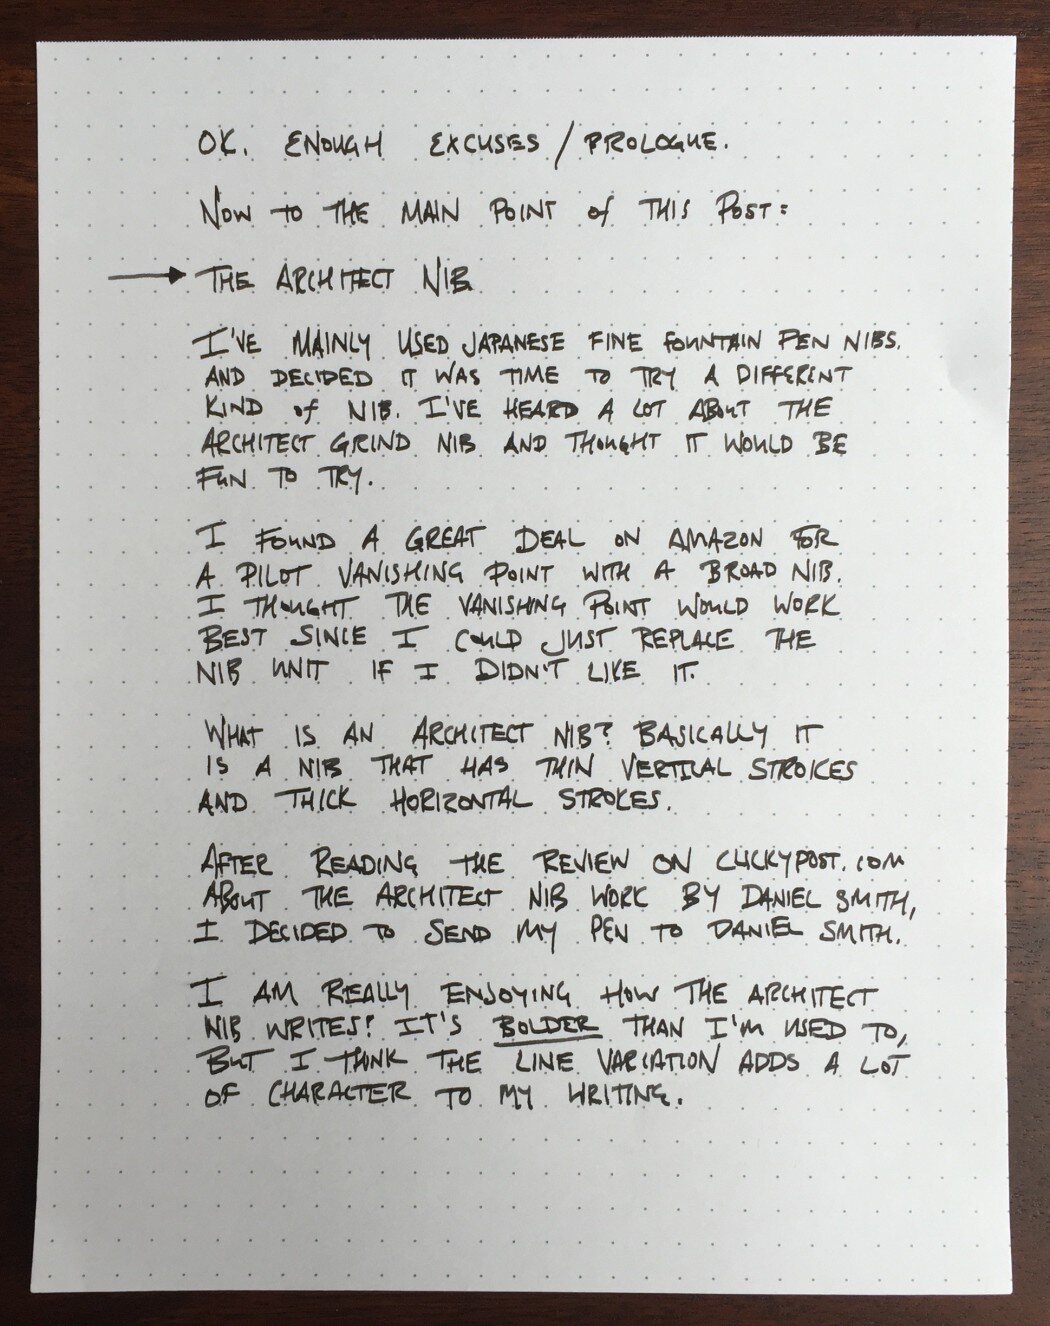 OK. ENOUGH EXCUSES / PROLOGUE.
NOW TO THE MAIN POINT of THIS POST:
THE ARCHITECT NIB
I'VE MAINLY USED JAPANESE FINE FOUNTAIN PEN NIBS.
AND DECIDED IT WAS TIME TO TRY A DIFFERENT
KIND of NIB. I'VE HEARD A LOT ABOUT THE
ARCHITECT GRIND NIB AND THOUGHT IT WOULD BE
FUN TO TRY.
I FOUND A GREAT DEAL ON AMAZON FOR
A PILOT VANISHING POINT WITH A BROAD NIB.
I THOUGHT THE VANISHING POINT WOULD WORK
BEST SINCE I COULD JUST REPLACE THE
NIB UNIT IF I DIDN'T LIKE IT.
WHAT IS AN ARCHITECT NIB? BASICALLY IT
IS A NIB THAT HAS THIN VERTICAL STROKES
AND THICK HORIZONTAL STROKES.
AFTER READING THE REVIEW ON CLICKYPOST.COM
ABOUT THE ARCHITECT NIB WORK BY DANIEL SMITH,
I DECIDED TO SEND MY PEN TO DANIEL SMITH.
I AM REALLY ENJOYING HOW THE ARCHITECT
NIB WRITES! IT'S BOLDER THAN I'M USED TO,
BUT I THINK THE LINE VARIATION ADDS A LOT
OF CHARACTER TO MY WRITING.